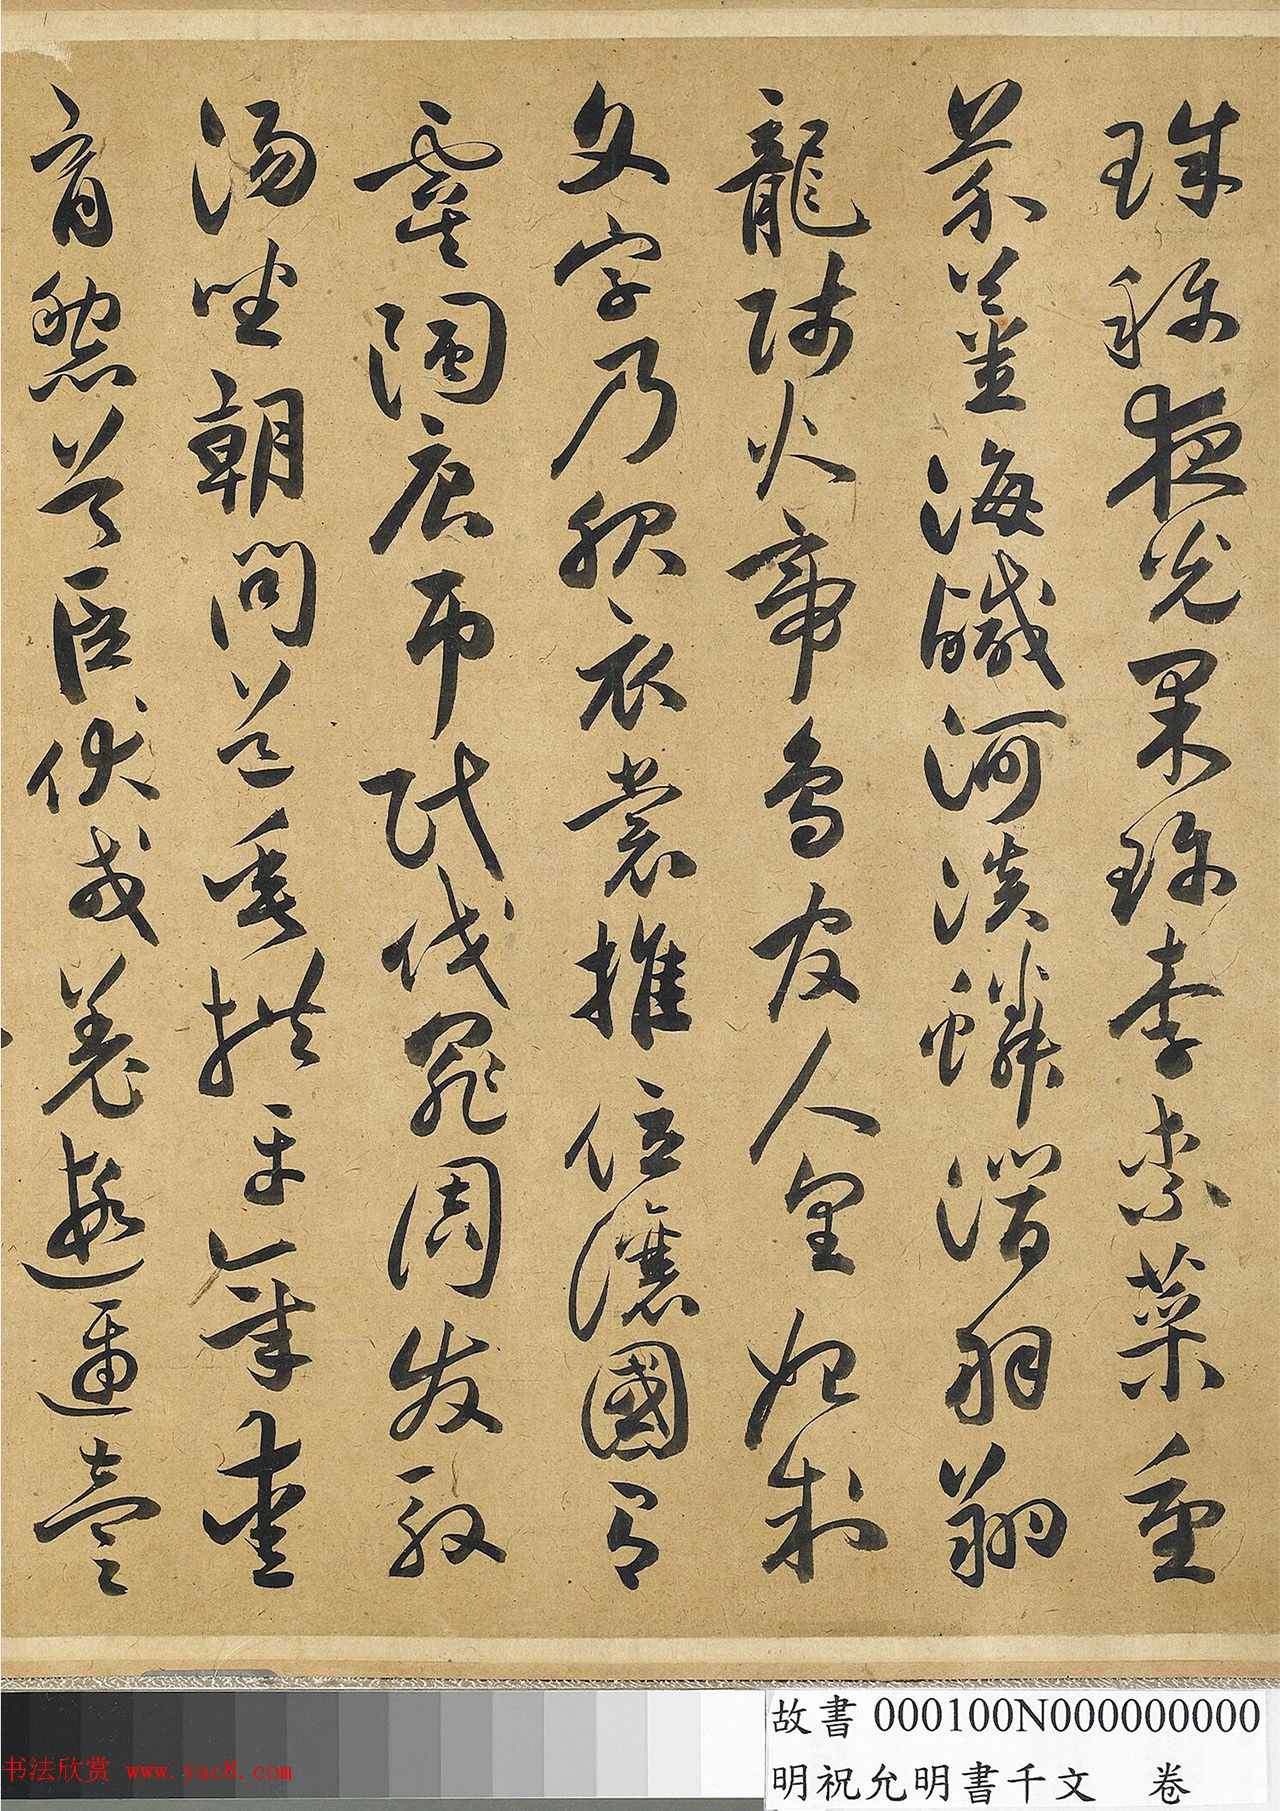 珠稱夜光果珍李柰菜重
芥薑海鹹河淡鱗潛羽翔
龍師火帝鳥官人皇始制
文字乃服衣裳推位讓國有
虞陶唐弔民伐罪周發殷
湯坐朝問道垂拱平章愛
育黎首臣伏戎羌遐邇壹
故書 000100N000000000
明祝允明書千文 卷
书法欣赏 www.yac8.com